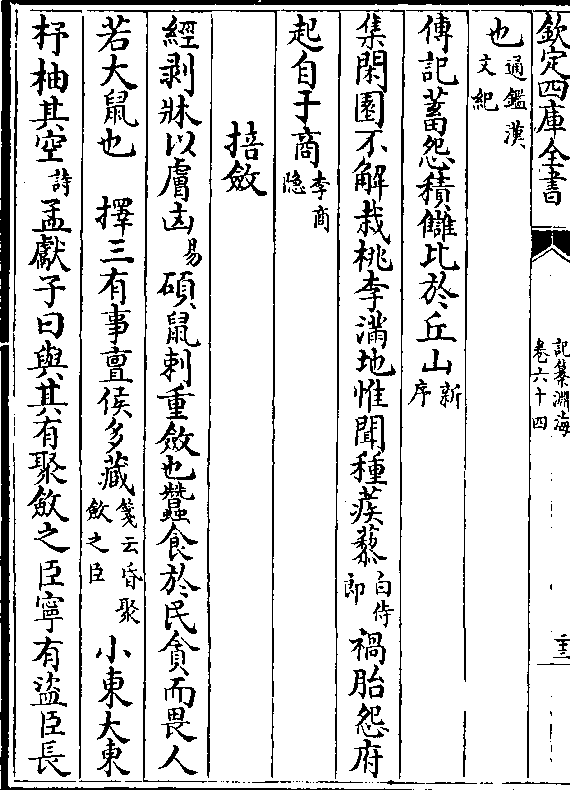 欽定四庫全書
記纂淵海
卷六十四
二十三
也通鑑漢文紀
傳記蓄怨積讎比於丘山新序
集閑園不解栽桃李滿地惟聞種蒺藜白侍郎禍胎怨府
起自子商李商隱
掊斂
經剥牀以膚凶易碩鼠刺重斂也蠶食於民貪而畏人
若大鼠也擇三有事亶侯多藏箋云皆聚斂之臣小東大東
杼柚其空詩孟獻子曰與其有聚斂之臣寧有盜臣長